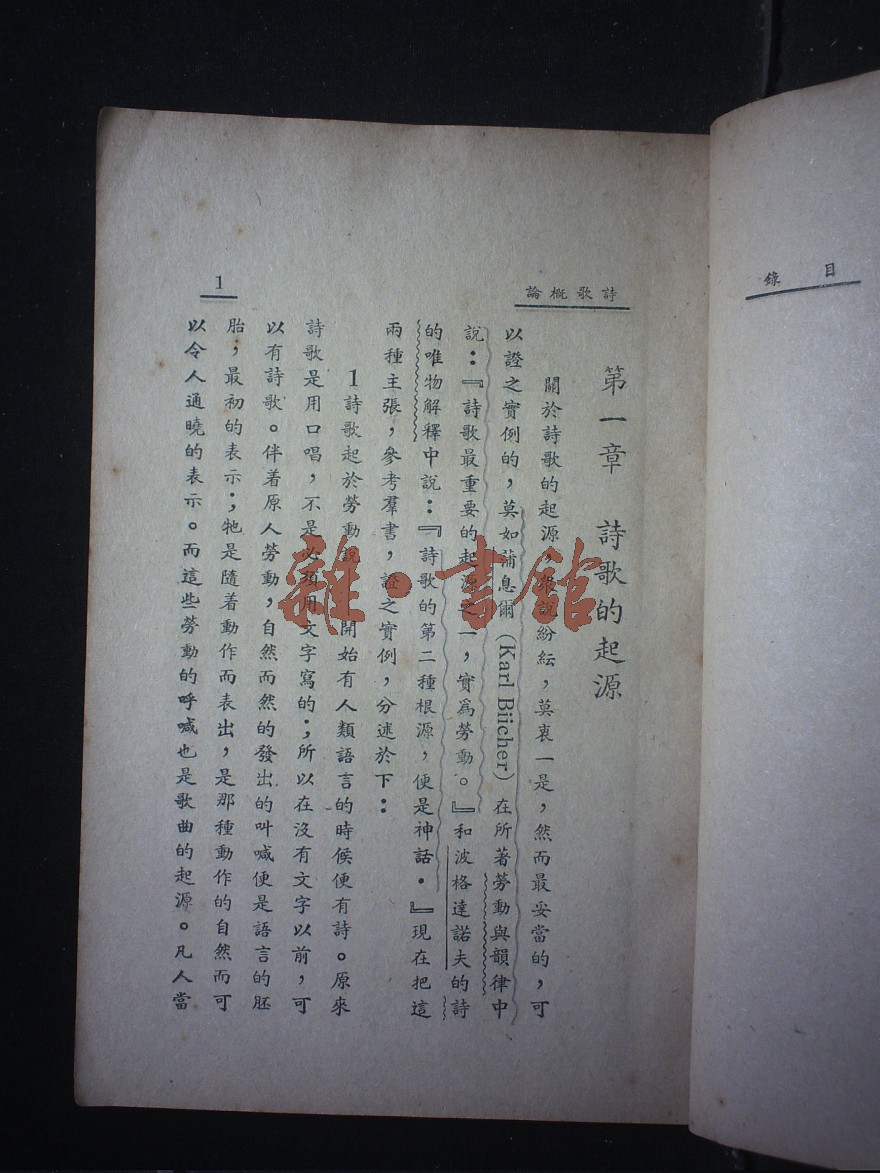 目錄
詩歌概論
第一章 詩歌的起源
關於詩歌的起源，眾說紛紜，莫衷一是，然而最妥當的，可
以證之實例的，莫如蒲息爾 (Karl Bücher) 在所著勞動與韻律中
說：『詩歌最重要的起源之一，實爲勞動。』和波格達諾夫的詩
的唯物解釋中說：『詩歌的第二種根源，便是神話．』現在把這
兩種主張，參考羣書，證之實例，分述於下：
1詩歌起於勞動說 開始有人類語言的時候便有詩。原來
詩歌是用口唱，不是必須用文字寫的；所以在沒有文字以前，可
以有詩歌。伴着原人勞動，自然而然的發出的叫喊便是語言的胚
胎；最初的表示；牠是隨着動作而表出，是那種動作的自然而可
以令人通曉的表示。而這些勞動的呼喊也是歌曲的起源。凡人當
1
雜·書館